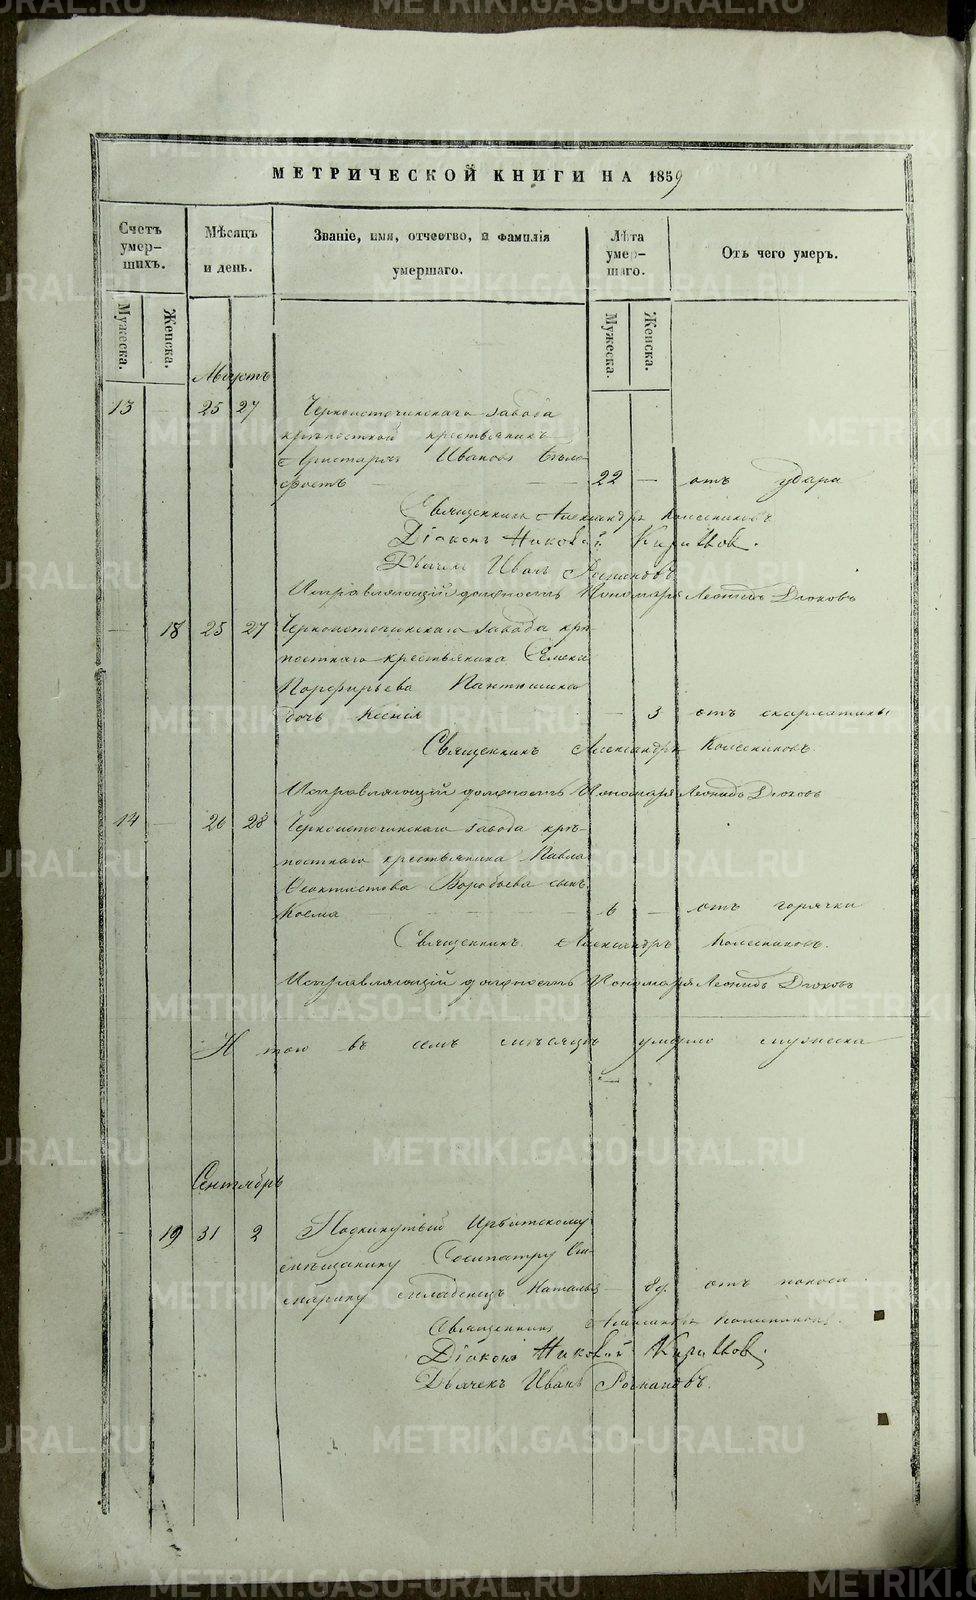 МЕТРИЧЕСКОЙ КНИГИ НА 1859
Счетъ умер-шихъ.
Мѣсяцъ и день.
Званіе, имя, отчество, и фамилія умершаго.
Лѣта умер-шаго.
Отъ чего умеръ.
Мужеска.
Женска.
Мужеска.
Женска.
Августъ
13 — 25 27 Черноисточинскаго завода
крѣпостной крестьянинъ
Аристархъ Ивановъ Бѣло-
фостъ — — 22 — отъ удара
Священникъ Александръ Колесниковъ
Діаконъ Николай
Дьячекъ Иванъ
Исправляющій должность Пономаря Леонидъ
— 18 25 27 Черноисточинскаго завода крѣ-
постнаго крестьянина
Порфирьева
дочь Ксенія — 3 отъ скарлатины
Священникъ Александръ Колесниковъ.
Исправляющій должность Пономаря Леонидъ
14 — 26 28 Черноисточинскаго завода крѣ-
постнаго крестьянина Павла
Феоктистова Воробьева сынъ
Косма — 6 — отъ горячки
Священникъ Александръ Колесниковъ.
Исправляющій должность Пономаря Леонидъ
Итого въ семъ мѣсяцѣ умерло мужеска —
Сентябрь
19 31 2 Подкинутый Ирбитскому
мѣщанину Сосипатру
младенецъ Наталья — отъ поноса
Священникъ Александръ Колесниковъ.
Діаконъ Николай
Дьячекъ Иванъ
METRIKI.GASO-URAL.RU